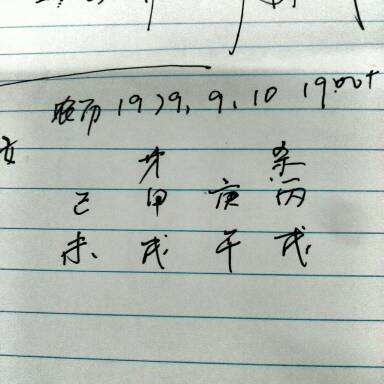 农历 1979, 9, 10 19:00+
女
才 杀
己 甲 庚 丙
未 戌 午 戌